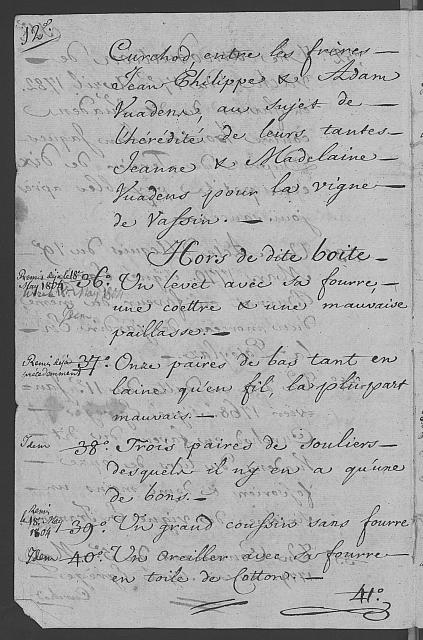 12º.
Curchod, entre les frères
Jean Philippe & Adam
Vuadens, au sujet de
L'hérédité de leurs tantes
Jeanne & Madelaine
Vuadens pour la vigne
de Vassin.
Hors de dite boite
Remis déja le 18e
May 1804
36º. Un levet avec sa fourre,
une coettre & une mauvaise
paillasse.
Remi déja
précédemment
37º. Onze paires de bas tant en
laine qu'en fil, la plûpart
mauvais.
Idem 38º. Trois paires de souliers
desquels il ny en a qu'une
de bons.
Remi
le 18e May
1804
39º. Un grand coussin sans fourre
Idem 40º. Un oreiller avec sa fourre
en toile de Cotton.
41º